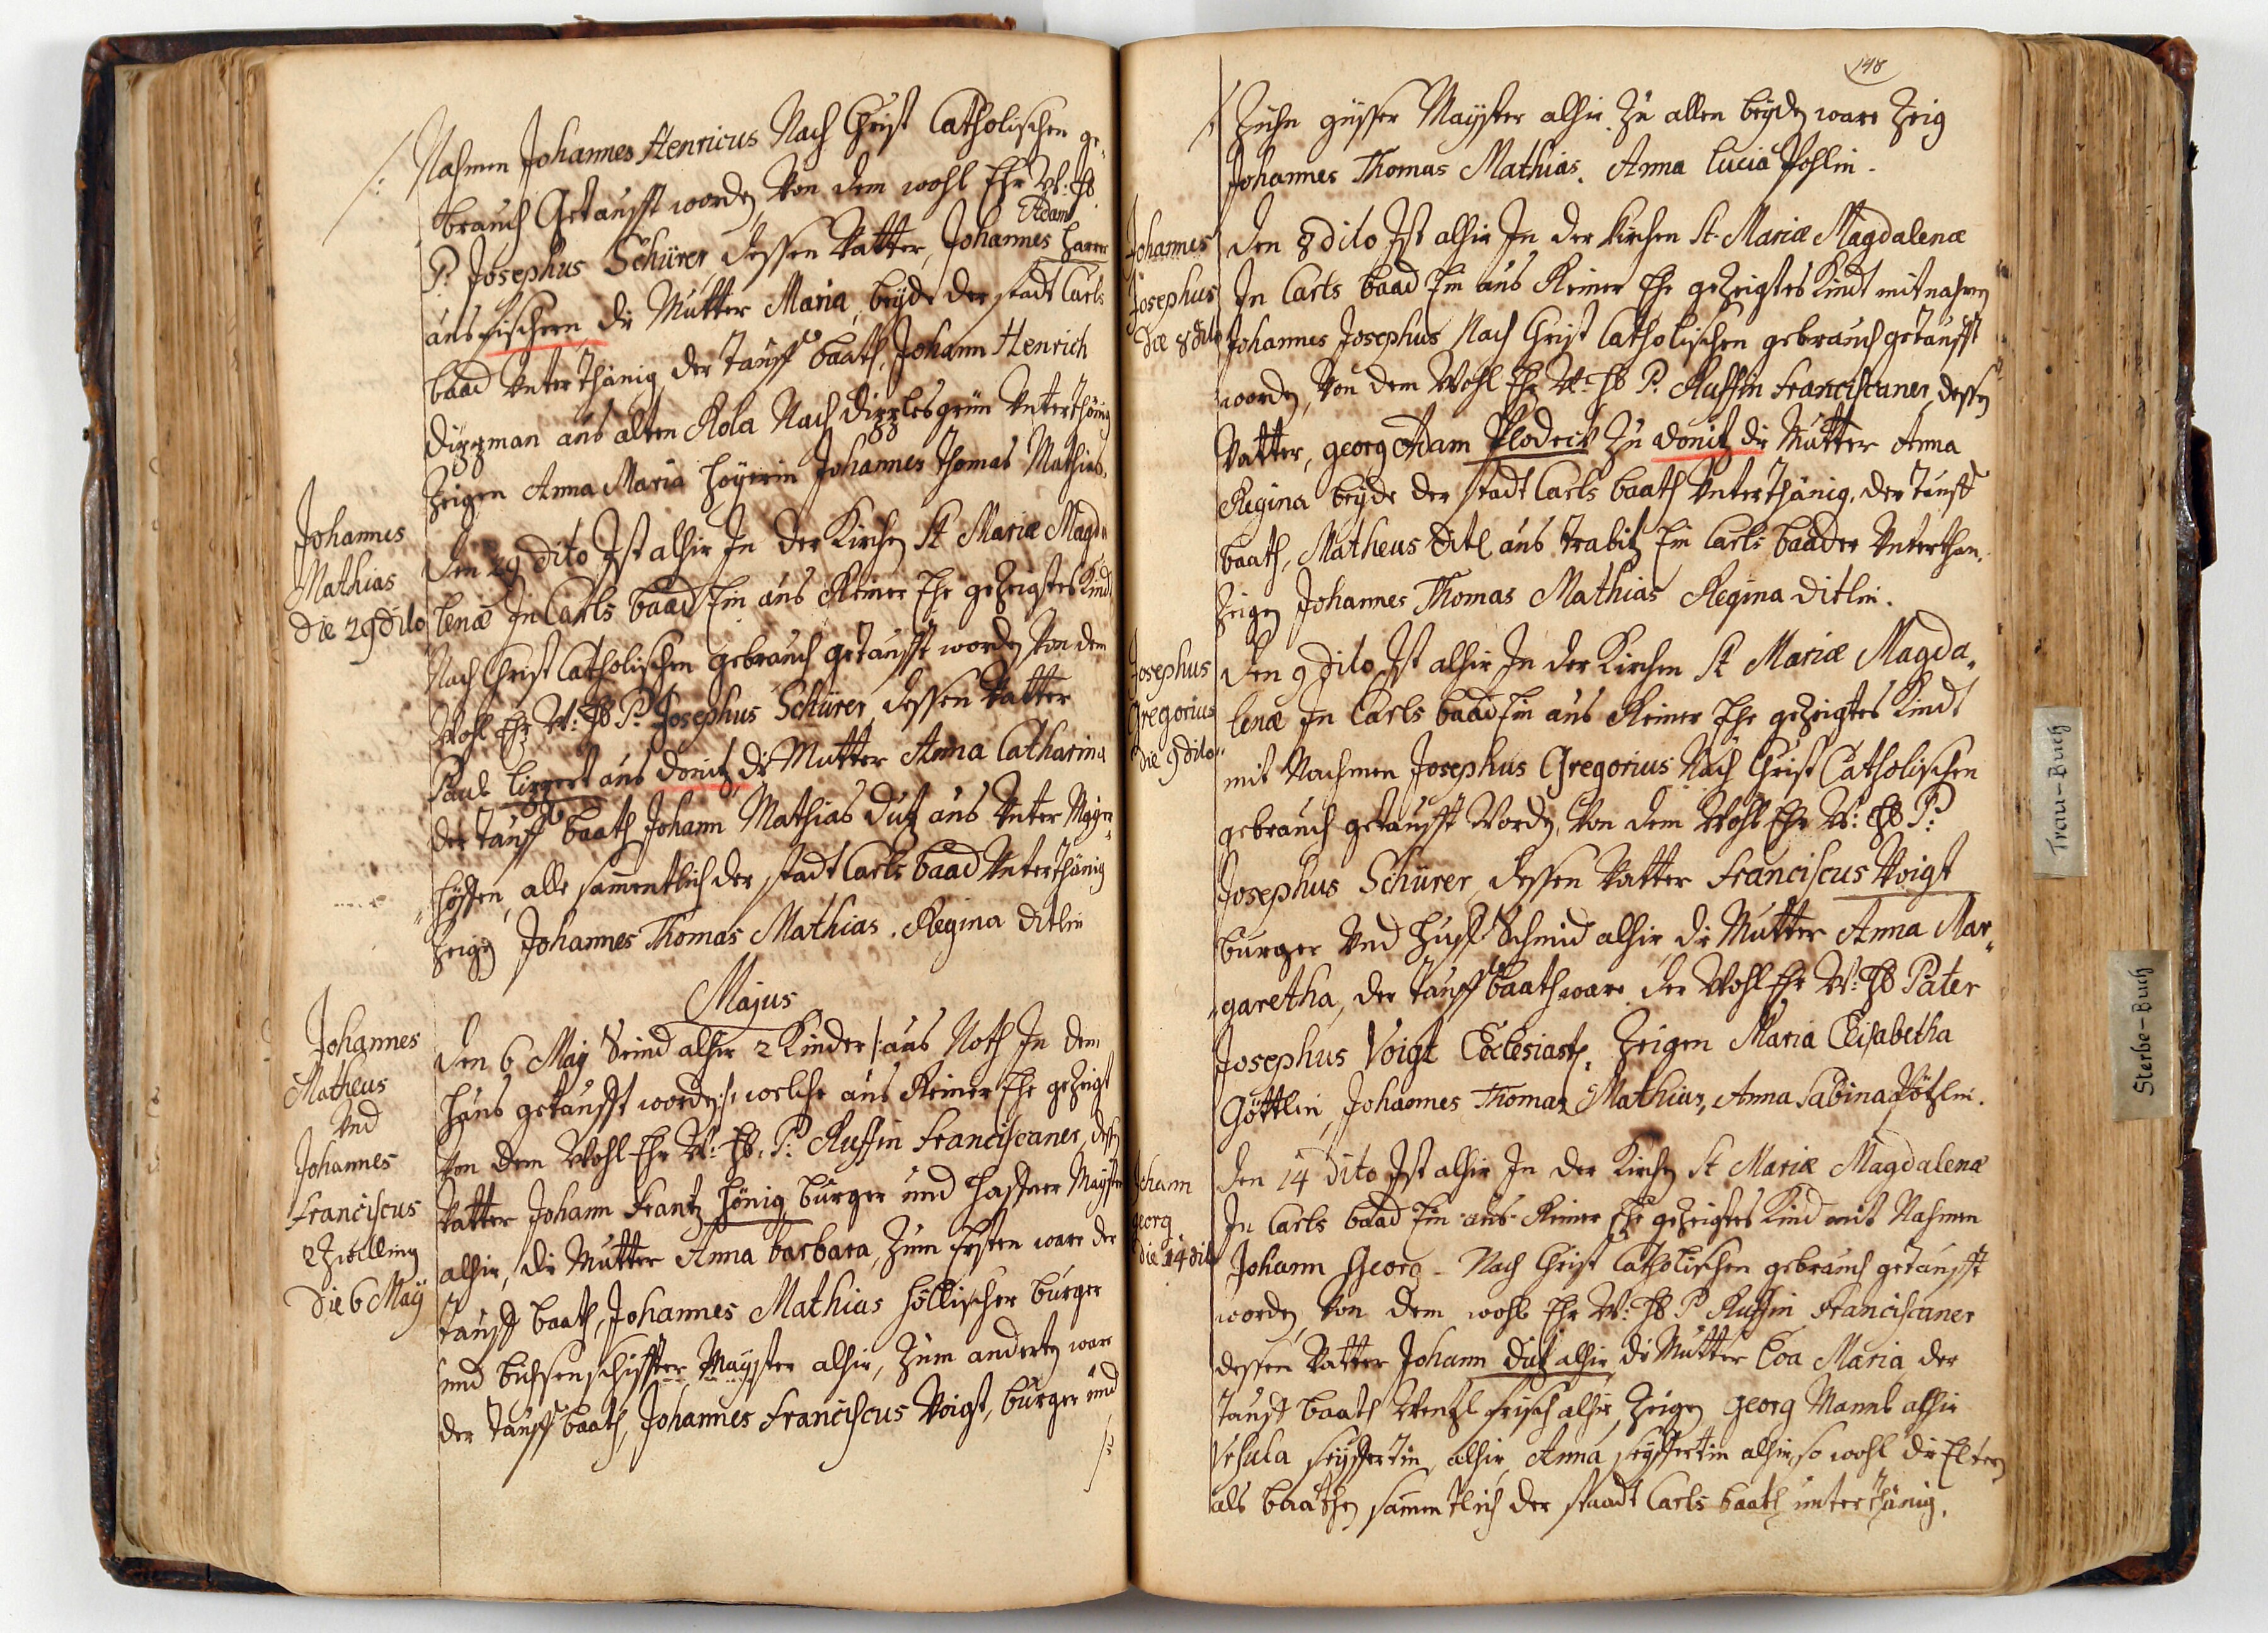 Nahmen Johannes Henricus Nach Christ Catholischen ge-
brauch Getaufft worden, Von dem wohl Ehr W: H
P: Josephus Schürer, dessen Vatter, Johannes Adam Harer
aus fischern, die Mutter Maria, beyde der stadt Carls
baad Unterthänig, der tauff baath, Johann Henrich
Dizzman aus alten Rola Nach dizzlesgrün Unterthänig
Zeigen Anna Maria Johannes Thomas Mathias.
Johannes
Mathias
die 29 dito
Den 29 dito Ist alhir In der Kirchen St Mariæ Magda
lenæ In Carls baad Ein aus Reiner Ehe gezeigtes Kind
Nach Christ Catholischen gebrauch getaufft worden, Von dem
Wohl Ehr W: H P: Josephus Schürer, dessen Vatter
Paul lippert aus donitz, die Mutter Anna Catharina
der tauff baath Johann Mathias Dutz aus Unter Mayer-
höffen, alle sammentlich der stadt Carls baad Unterthänig
Zeigen Johannes Thomas Mathias. Regina ditlin
Majus
Johannes
Matheus
Und
Johannes
Franciscus
2 Zwilling
Die 6 May
Den 6 May Seind alhir 2 Kinder /: aus Noth In dem
Haus getaufft worden :/ welche aus Reiner Ehe gezeigt
Von dem Wohl Ehr W: H: P: Ruffin Franciscaner, dessen
Vatter Johann Frantz Hönig, bürger und Haffner Mayster
alhir, die Mutter Anna barbara, Zum Ersten ware der
tauff baath, Johannes Mathias Höllischer bürger
und büchsenschiffter Mayster alhir, Zum anderten war
der tauff baath, Johannes Franciscus Voigt, bürger und
148
Zichn güsser Mayster alhir. Zu allen beyden ware Zeig
Johannes Thomas Mathias. Anna Lucia Pohlin.
Johannes
Josephus
die 8 dito
Den 8 dito Ist alhir In der Kirchen St. Mariæ Magdalenæ
In Carls baad Ein aus Reiner Ehe gezeigtes Kindt mit nahmen
Johannes Josephus Nach Christ Catholischen gebrauch getaufft
worden, Von dem Wohl Ehr W: H P: Ruffin Franciscaner, dessen
Vatter, georg Adam Plodeck Zu donitz, die Mutter Anna
Regina beyde der stadt Carls baath Unterthänig, der tauff
baath, Matheus ditl aus trabitz Ein Carls baader Unterthan.
Zeigen Johannes Thomas Mathias Regina ditlin.
Josephus
Gregorius
die 9 dito
Den 9 dito Ist alhir In der Kirchen St Mariæ Magda-
lenæ In Carls baad Ein aus Reiner Ehe gezeigtes Kindt
mit Nachmen Josephus Gregorius Nach Christ Catholischen
gebrauch getaufft Worden, Von dem Wohl Ehr W: H P:
Josephus Schürer, dessen Vatter Franciscus Voigt
burger Und Huff Schmid alhir, die Mutter Anna Mar-
garetha, der tauff baath ware der Wohl Ehr W: H Pater
Josephus Voigt Ecclesiast. Zeigen Maria Elisabetha
Göttlin, Johannes Thomas Mathias, Anna Sabina Pötzlin.
Johann
georg
die 14 dito
Den 14 dito Ist alhir In der Kirchen St Mariæ Magdalenæ
In Carls baad Ein aus Reiner Ehe gezeigtes Kind mit Nahmen
Johann Georg - Nach Christ Catholischen gebrauch getaufft
worden, Von dem wohl Ehr W: H P Ruffin Franciscaner
dessen Vatter Johann Dutz alhir, die Mutter Eva Maria, der
tauff baath Wenzl frisch alhir, Zeigen georg Mannl alhir
Ursula seyffertin, alhir, Anna seyffertin alhir, so wohl die Eltern
als baathen sammentlich der staadt Carls baath unterthänig.
Trau-Buch
Sterbe-Buch